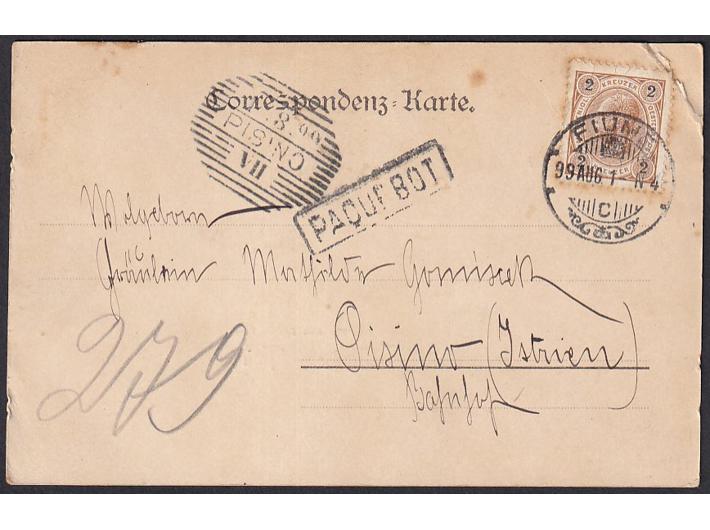 Correspondenz-Karte.
2 KREUZER 2
2 2
FIUME
99 AUG 1 N 4
C
8 99
PISINO
VII
PAQUEBOT
Wolgeborn
Fräulein Mathilde Goniscek
Pisino (Istrien)
Bahnhof
279